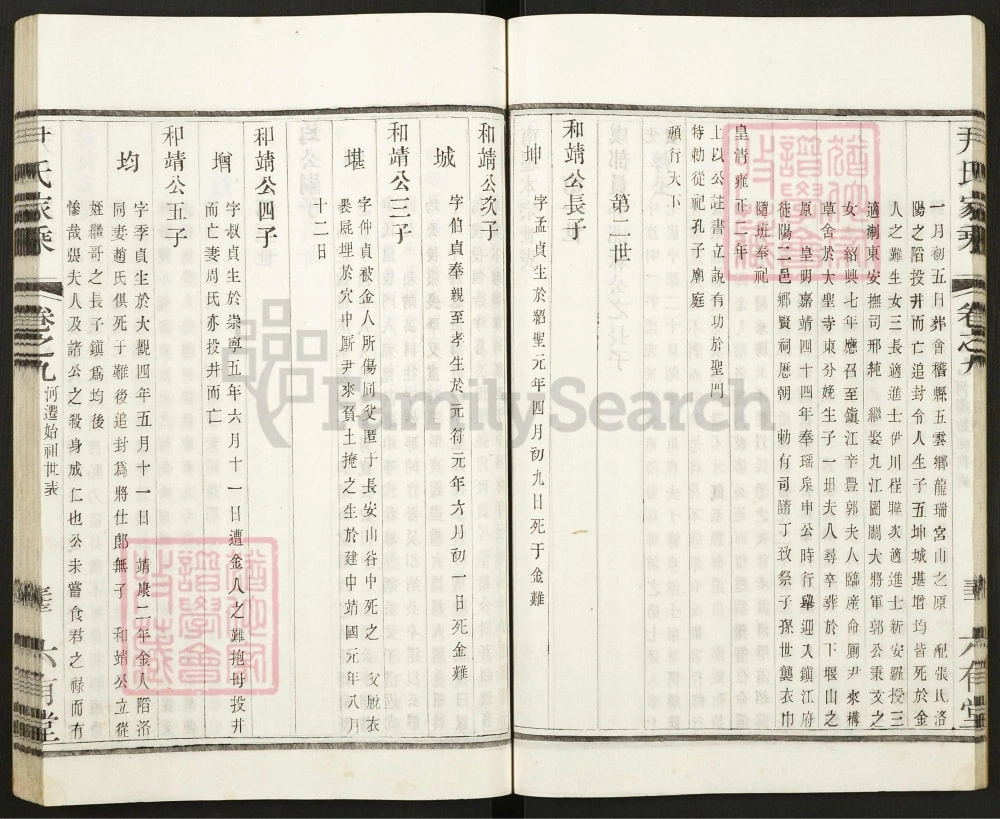 尹氏家乘
卷之九
六有堂
一月初五日葬會稽縣五雲鄉龍瑞宮山之原 配張氏洛
陽之陷投井而亡追封令人生子五坤城堪增均皆死於金
人之難生女三長適進士伊川程暐次適進士新安羅授三
適湖東安撫司邢純 繼娶九江團關大將軍郭公秉文之
女 紹興七年應召至鎮江辛豐郭夫人臨産命厠尹來構
草舍於大聖寺東分娩生子一坦夫人尋卒葬於下堰山之
原 皇明嘉靖四十四年奉瑶泉申公時行舉迎入鎮江府
徒陽二邑鄉賢祠歷朝 勅有司隨丁致祭子孫世襲衣巾
隨班奉祀
皇清雍正二年
上以公註書立説有功於聖門
特勅從祀孔子廟庭
頒行天下
第二世
和靖公長子
坤 字孟貞生於紹聖元年四月初九日死于金難
和靖公次子
城 字伯貞奉親至孝生於元符元年六月初一日死金難
和靖公三子
堪 字仲貞被金人所傷同父匿于長安山谷中死之 父脱衣
裹屍埋於穴中厮尹來負土掩之生於建中靖國元年八月
十二日
和靖公四子
增 字叔貞生於崇寧五年六月十一日遭金人之難抱母投井
而亡妻周氏亦投井而亡
和靖公五子
均 字季貞生於大觀四年五月十一日 靖康二年金人陷洛
同妻趙氏俱死于難後追封爲將仕郎無子 和靖公立從
姪繼哥之長子鎮爲均後
慘哉張夫人及諸公之殺身成仁也公未嘗食君之祿而有
氏家乘
卷之九 河遷始祖世表
六有堂
FamilySearch